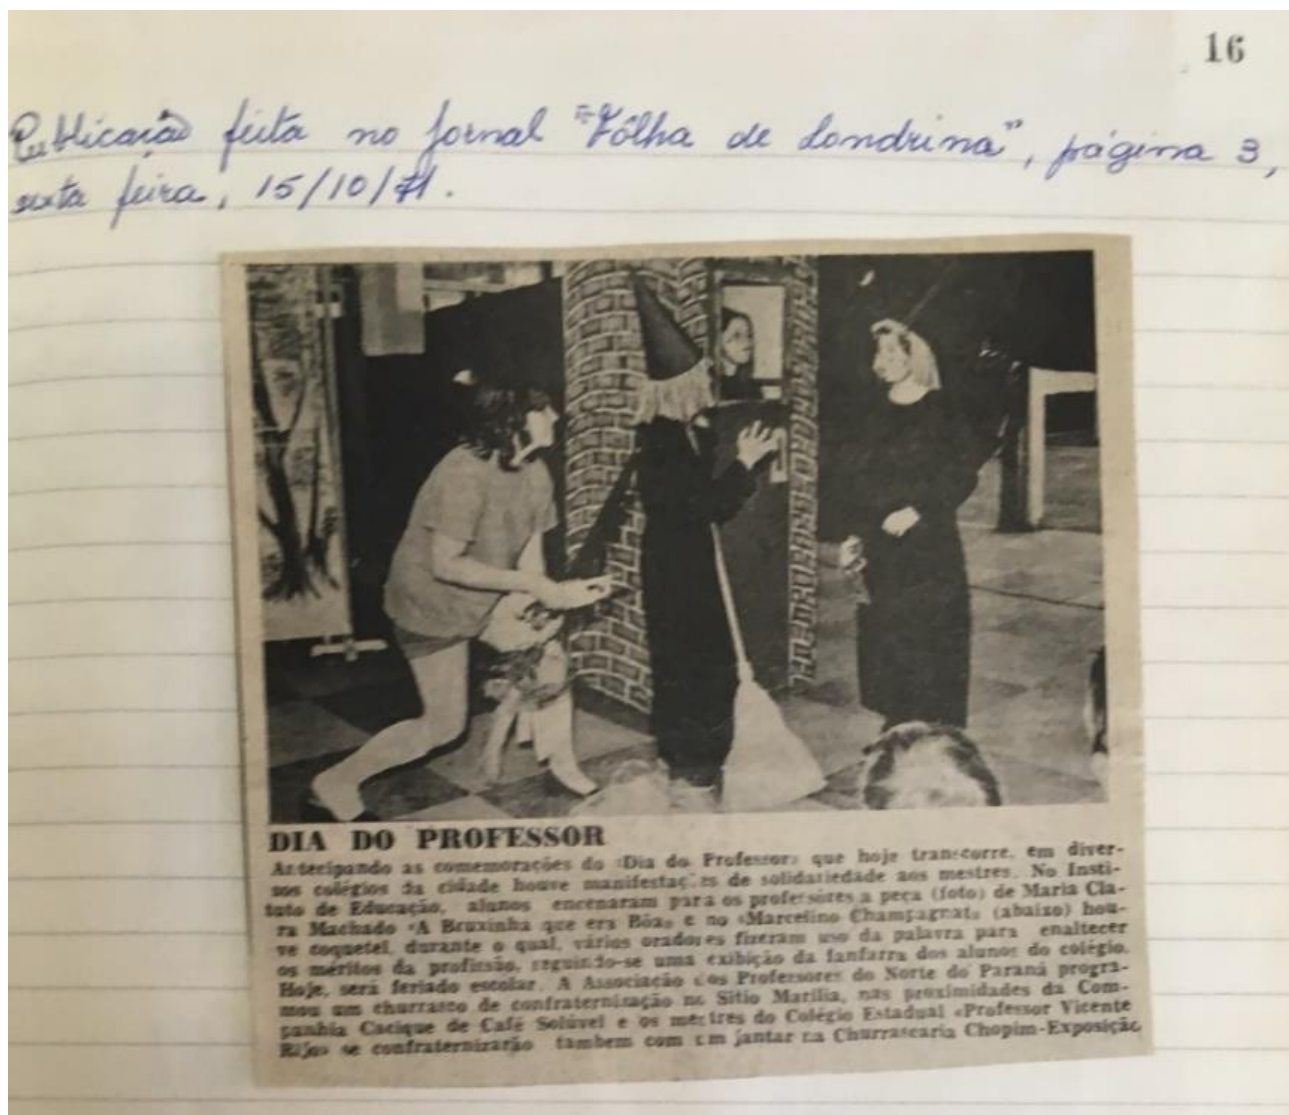 16
Publicação feita no jornal "Fôlha de Londrina", página 3,
sexta feira, 15/10/71.
DIA DO PROFESSOR
Antecipando as comemorações do «Dia do Professor» que hoje transcorre, em diver-
sos colégios da cidade houve manifestações de solidariedade aos mestres. No Insti-
tuto de Educação, alunos encenaram para os professôres a peça (foto) de Maria Cla-
ra Machado «A Bruxinha que era Bôa» e no «Marcelino Champagnat» (abaixo) hou-
ve coquetel, durante o qual, vários oradores fizeram uso da palavra para enaltecer
os méritos da profissão, seguindo-se uma exibição da fanfarra dos alunos do colégio.
Hoje, será feriado escolar. A Associação dos Professores do Norte do Paraná progra-
mou um churrasco de confraternização no Sitio Marilia, nas proximidades da Com-
panhia Cacique de Café Solúvel e os mestres do Colégio Estadual «Professor Vicente
Rijo» se confraternizarão tambem com um jantar na Churrascaria Chopim-Exposição